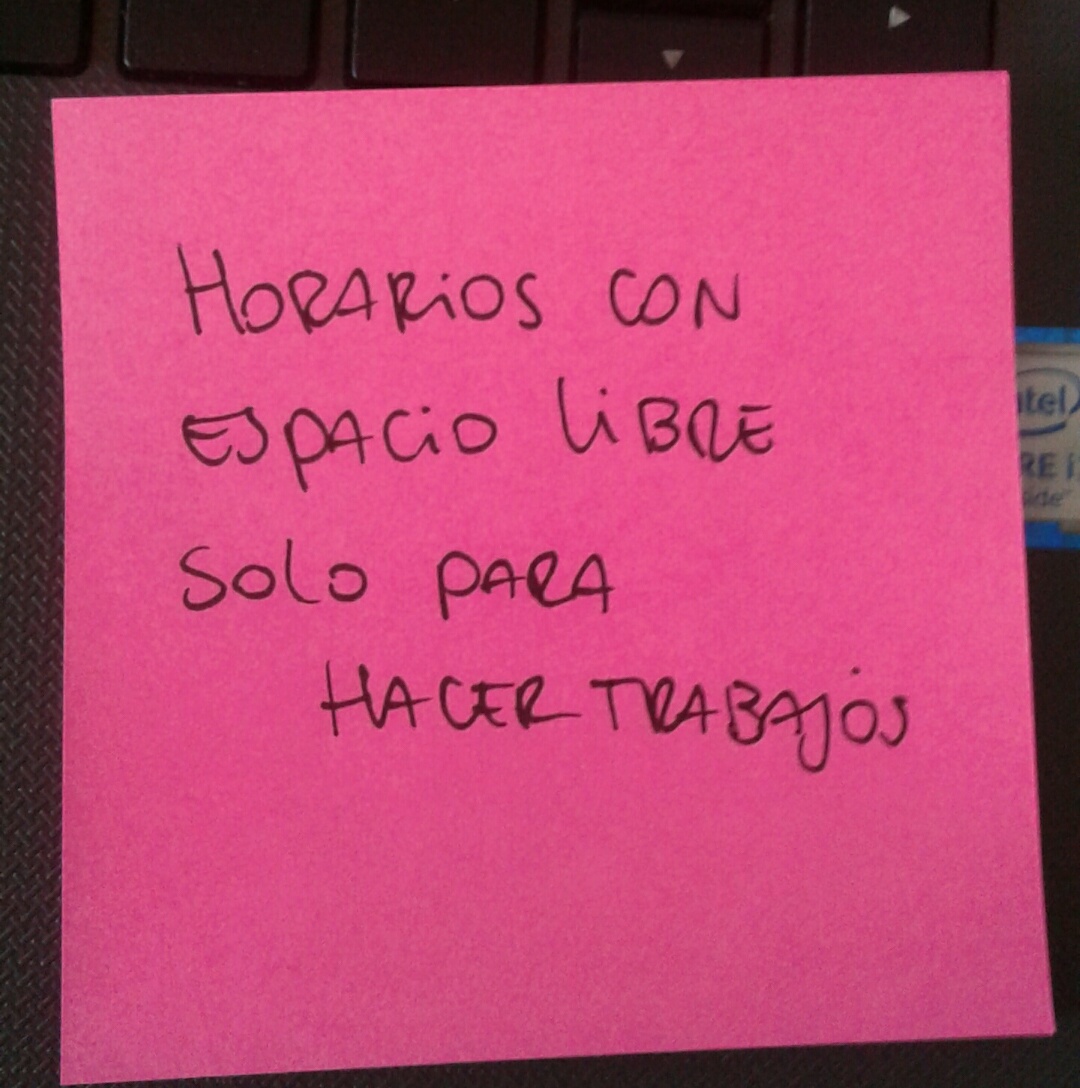 HORARIOS CON
ESPACIO LIBRE
SOLO PARA
HACER TRABAJOS
ntel
RE i
ide"